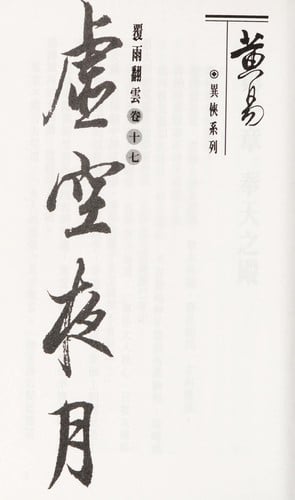 黄易
◉異俠系列
覆雨翻雲卷十七
虛空夜月